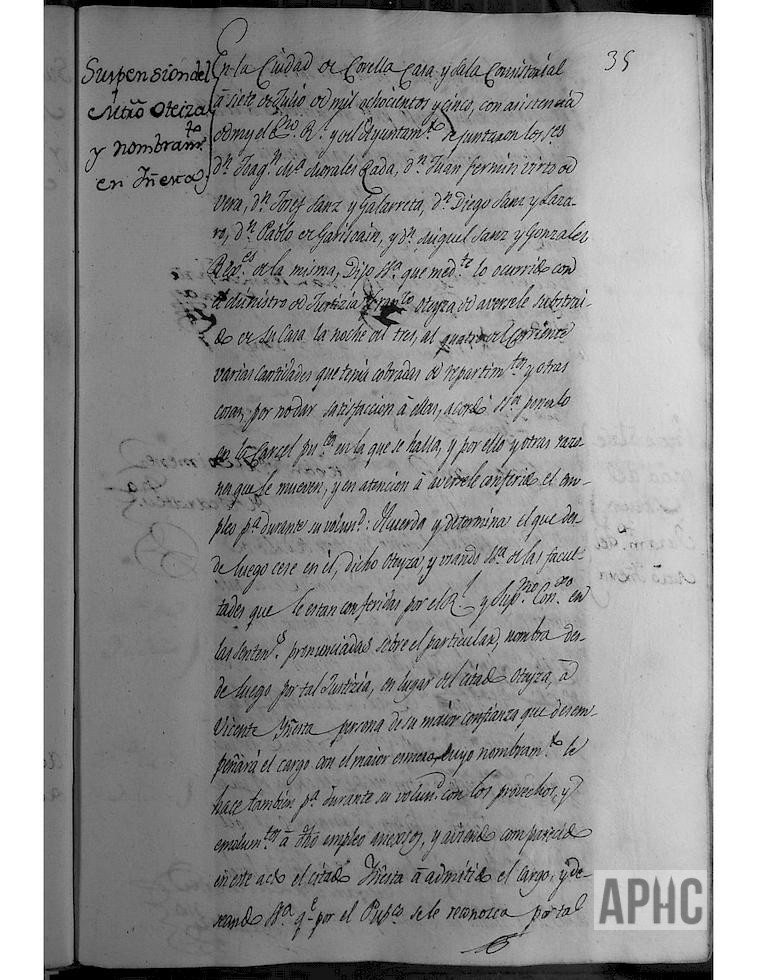 35
Suspension del
Mtrõ Oteiza
y nombram.to
en Yñesta
En la Ciudad de Corella Casa y Sala Consistorial
à siete de Julio de mil ochocientos y cinco, con asistencia
de my el Ess.no R.l y del Ayuntam.to se juntaron los S.es
d.n Joaq.n M.a Morales Rada, d.n Juan fermin virto de
vera, d.n Josef Sanz y Galarreta, d.n Diego Sanz y Laza-
ro, d.n Pablo de Garisoain, y d.n Miguel Sanz y Gonzalez
Rex.es de la misma, Dijo N.a que med.te lo ocurrido con
el Ministro de Justizia fran.co Oteyza de aversele substrai-
do de su Casa la noche del tres, al quatro del Corriente
varias Cantidades que tenia cobradas de repartim.tos y otras
cosas, por no dar satisfaccion à ellas, acordó N.a ponerlo
en la Carcel pu.ca en la que se halla, y por ello y otras razo-
nes que le mueven, y en atencion à aversele conferido el em-
pleo p.a durante su volun.d: Acuerda y determina el que des-
de luego cese en él, dicho Oteyza, y usando N.a de las facul-
tades que le estan conferidas por el R.l y Sup.mo Con.xo en
las senten.s pronunciadas sobre el particular, nombra des-
de luego por tal Justizia, en lugar del citado Oteyza, à
Vicente Yñesta persona de su maior confianza que desem-
peñará el cargo con el maior esmero, cuyo nombram.to le
hace tambien p.a durante su volun.d con los provechos, y
emolum.tos à dho empleo anexos, y aviendo comparecido
en este acto el citado Yñesta à admitido el cargo, y de-
seando N.a q.e por el Pub.co se le reconozca por tal
APHC